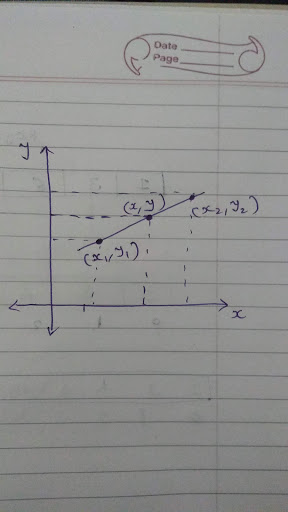 Date
Page
y
(x, y)
(x2, y2)
(x1, y1)
x